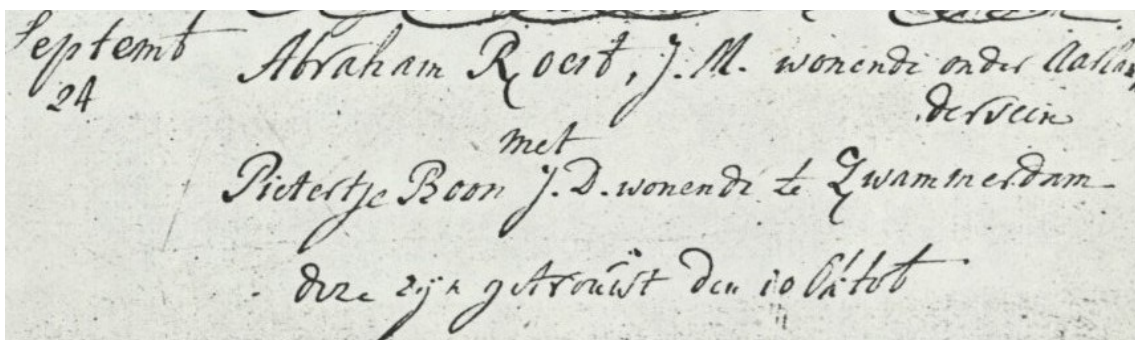 Septemb Abraham Roest, J.M. wonende onder Aarlan
24 derveen
met
Pietertje Boon J.D. wonende te Zwammerdam
deze zijn getrouwt den 10 Oktob